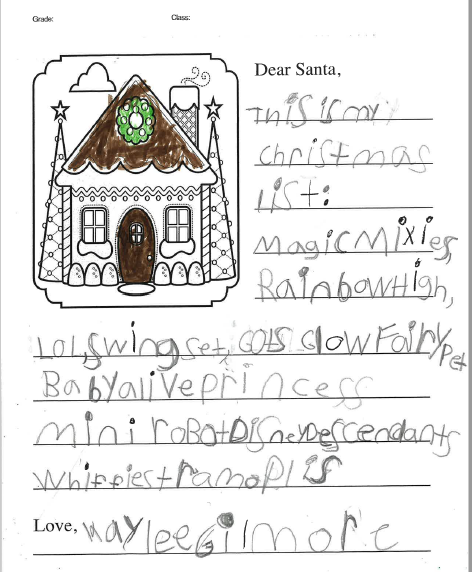 Grade:
Class:
Dear Santa,
This is my
christmas
List:
MagicMixies,
RainbowHigh,
LOL, Swing set, Glow Fairy Pet
Babyalive princess
mini roBotDisneyDescendants
Love, Hayleegilmore